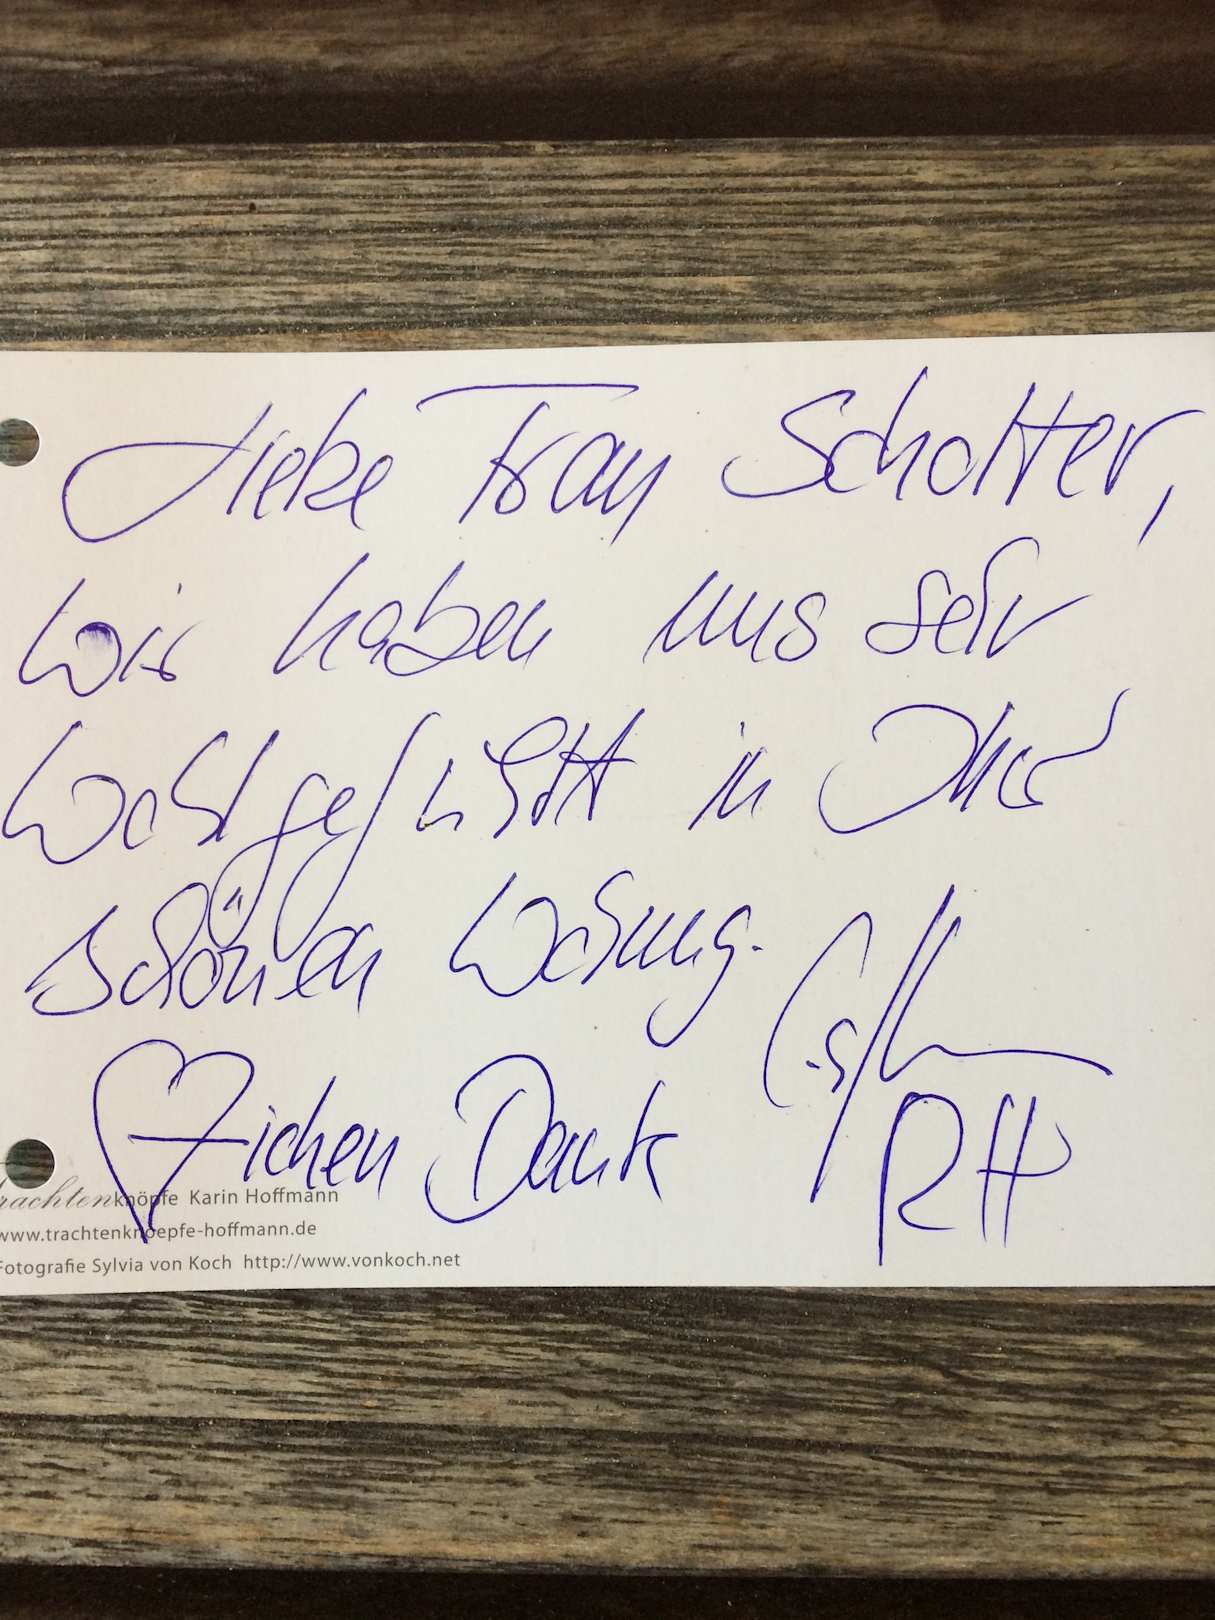 Liebe Frau Schotter,
wir haben uns sehr
wohlgefühlt in Ihrer
schönen Wohnung.
♡lichen Dank
RH
trachtenknöpfe Karin Hoffmann
www.trachtenknoepfe-hoffmann.de
Fotografie Sylvia von Koch http://www.vonkoch.net